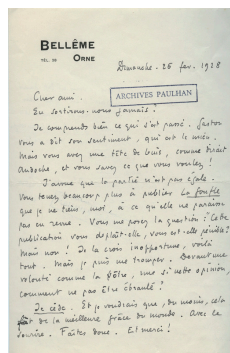 BELLÊME
TÉL. 28 ORNE
Dimanche - 26 fév. 1928
ARCHIVES PAULHAN
Cher ami.
En sortirons-nous jamais !
Je comprends bien ce qui s'est passé. Gaston
vous a dit son sentiment, qui est le mien.
Mais vous avez une tête de buis, comme dirait
et vous savez ce que vous voulez !
J'avoue que la partie n'est pas égale.
Vous tenez beaucoup plus à publier La
que je ne tiens, moi, à ce qu'elle ne paraisse
pas en revue. Vous me posez la question : Cette
publication vous déplaît-elle, vous est-elle pénible ?
Mais non ! Je la crois inopportune, voilà
tout. Mais je puis me tromper. Devant une
volonté comme la vôtre, une si nette opinion,
comment ne pas être ébranlé ?
Je cède. Et je voudrais que, du moins, cela
fût de la meilleure grâce du monde. Avec le
sourire. Faites donc. Et merci !